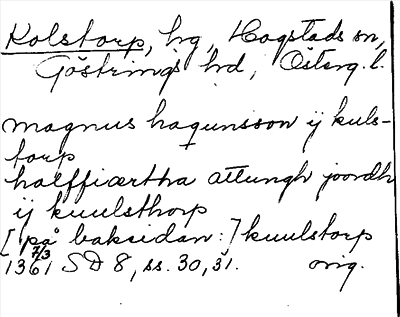 Kolstorp, hg, Hogstads sn,
Göstrings hd, Österg. l.
magnus haqunsson ij kuls-
torp
halffiærtha attungh joordh
ij kuulsthorp
[på baksidan:] kuulstorp
7/3
1361 SD 8, ss. 30, 31. orig.